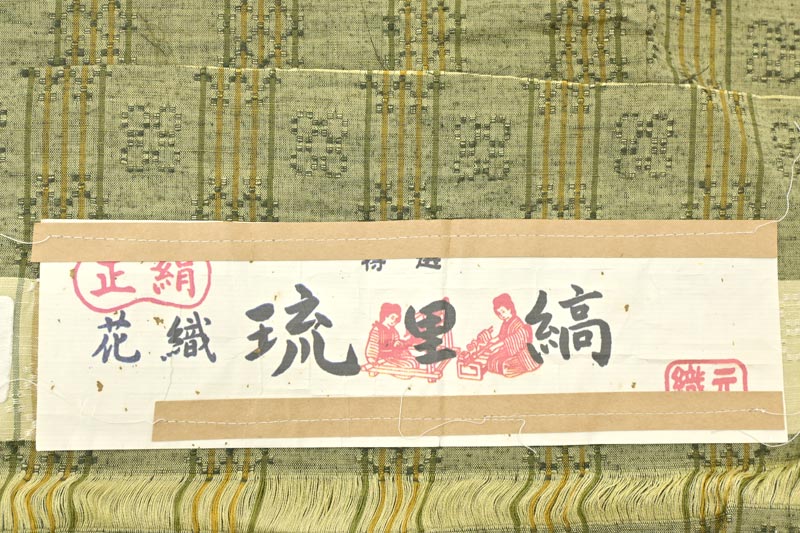 特選
正絹
花織 琉里縞
織元